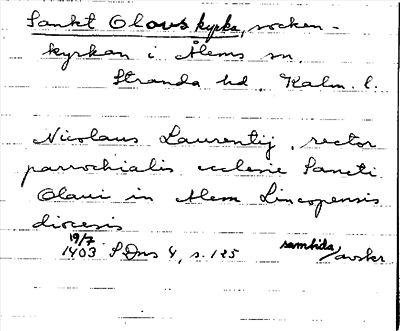 Sankt Olovs kyrka, socken-
kyrkan i Ålems sn.
Stranda hd. Kalm. l.
Nicolaus Laurentij, rector
parrochialis ecclesie Sancti
Olaui in Alem Lincopensis
diocesis
19/7
1403 SDns 1, s. 125 samtida/avskr.